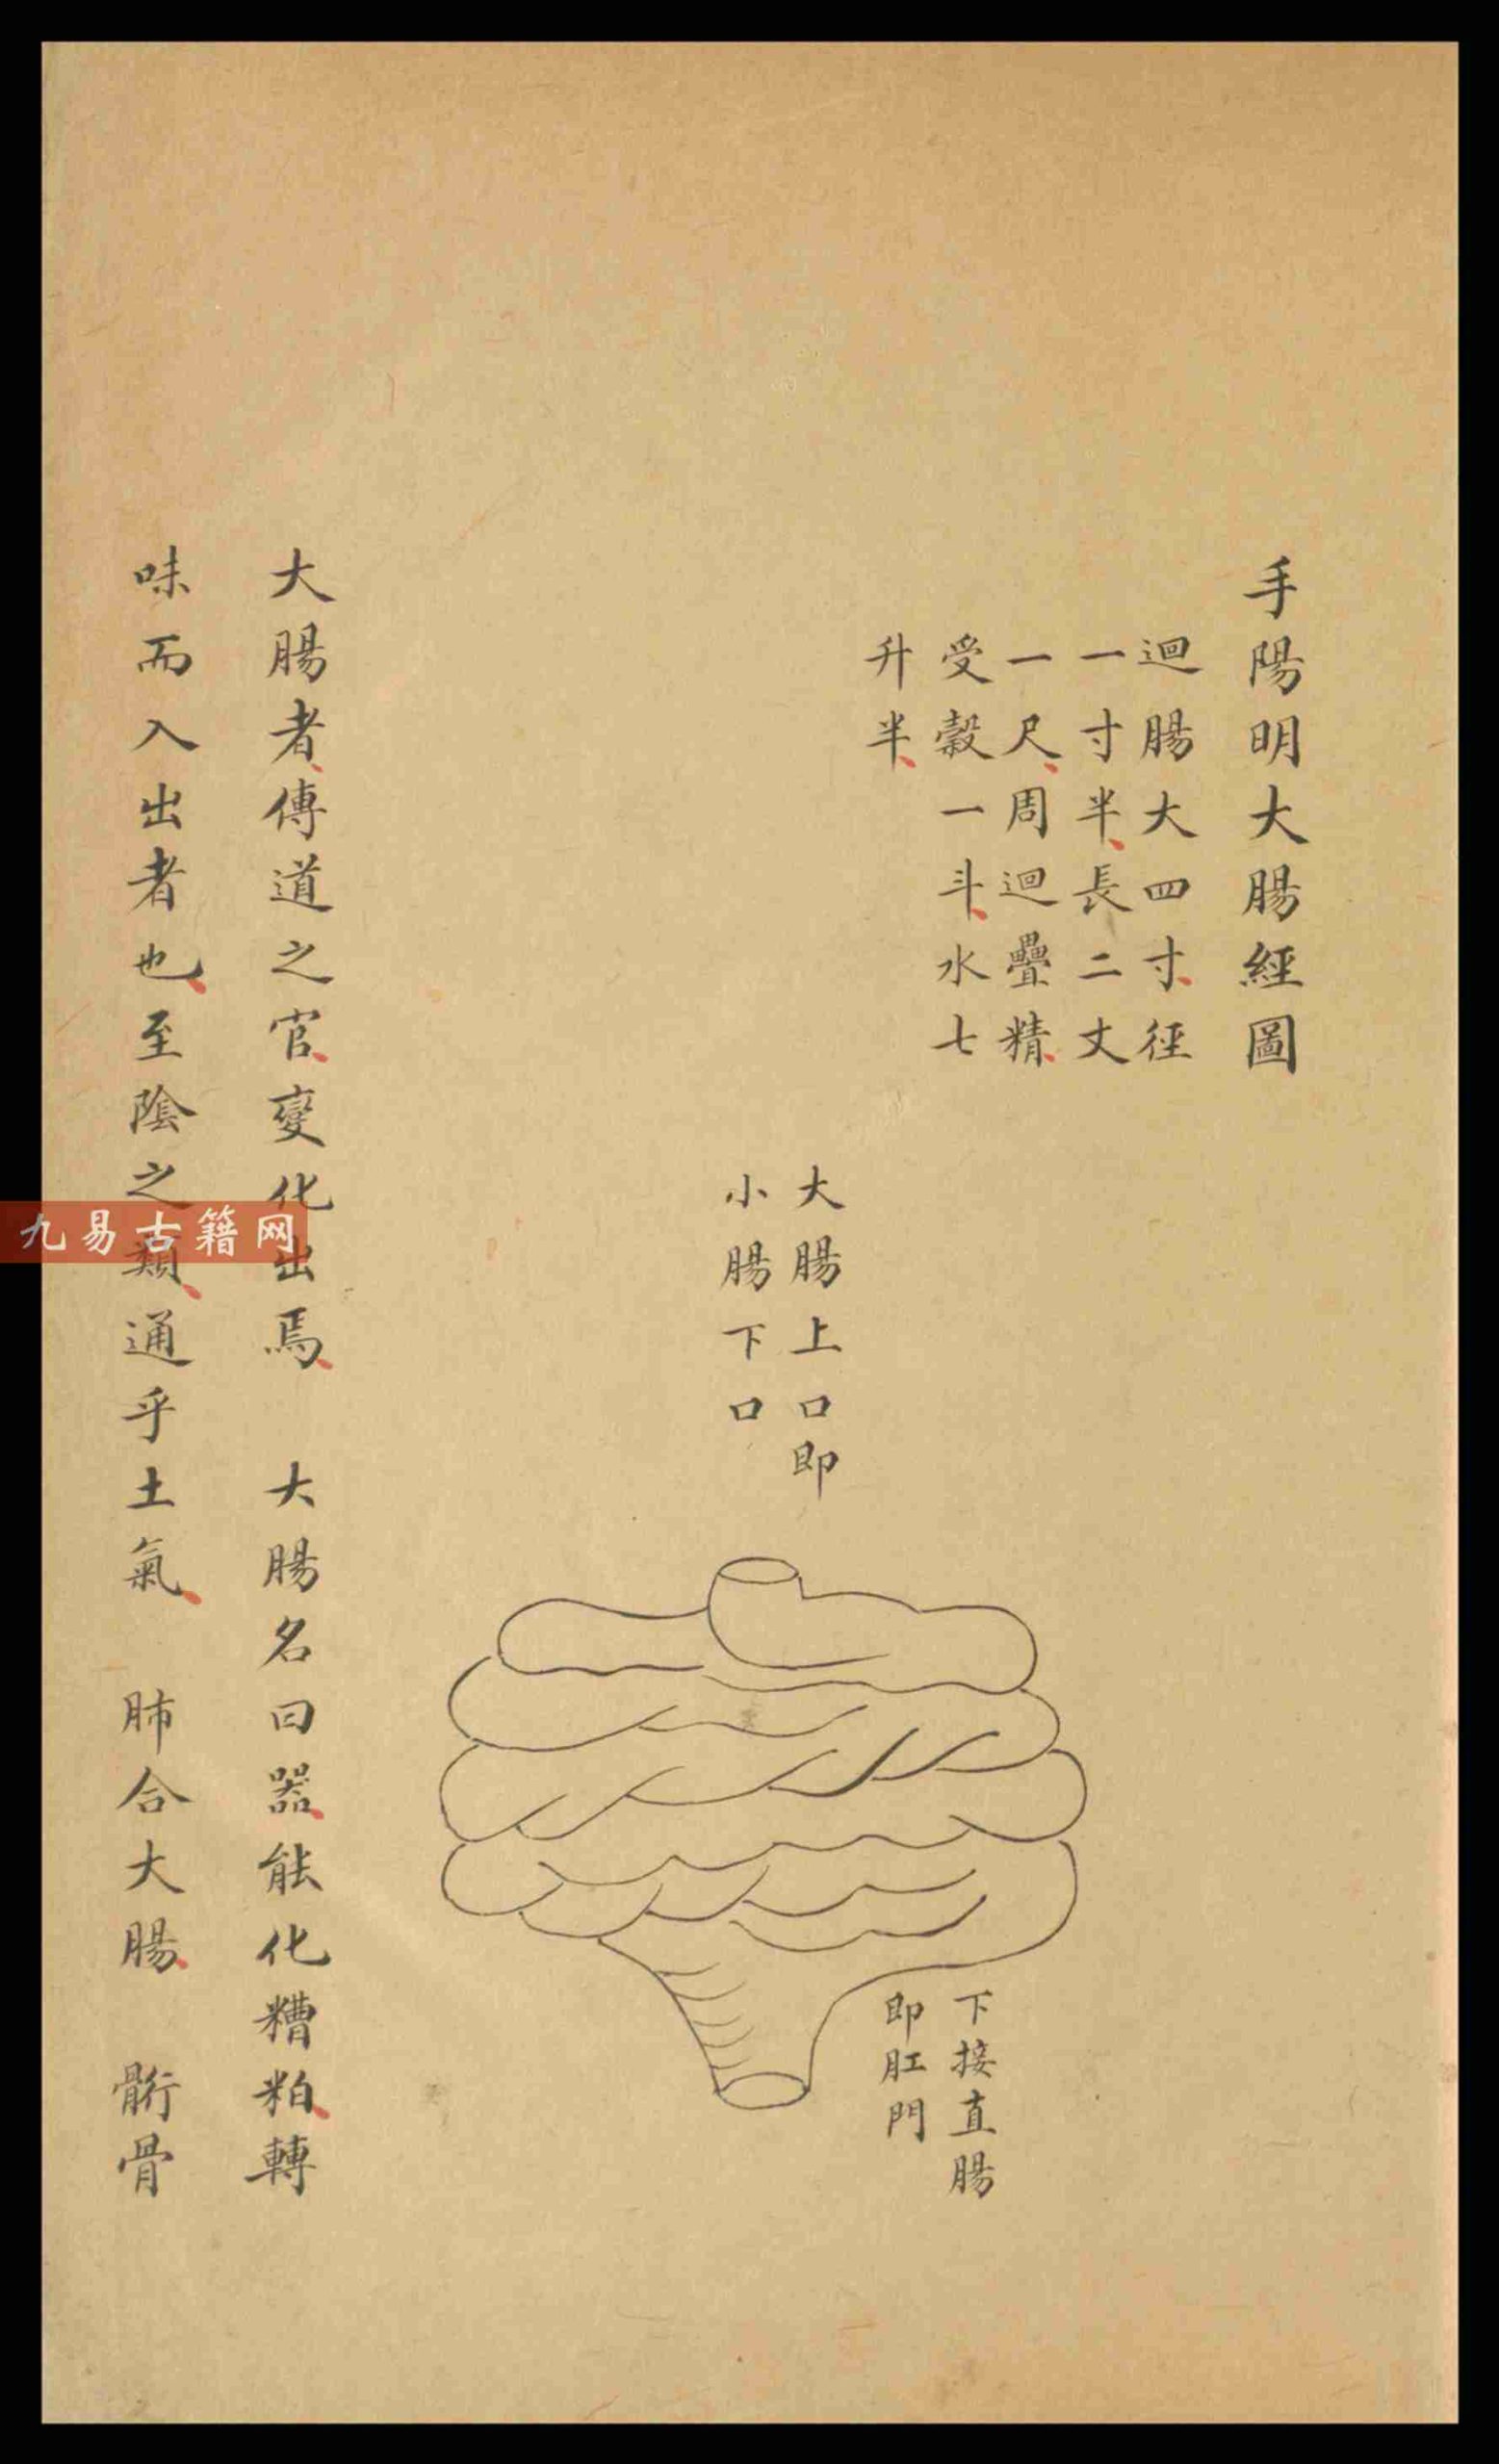 手陽明大腸經圖
迴腸大四寸徑
一寸半長二丈
一尺周迴疊精
受穀一斗水七
升半
大腸上口即
小腸下口
下接直腸
即肛門
大腸者傳道之官變化出焉　大腸名曰器能化糟粕轉
味而入出者也至陰之類通乎土氣　肺合大腸　䯒骨
九易古籍网